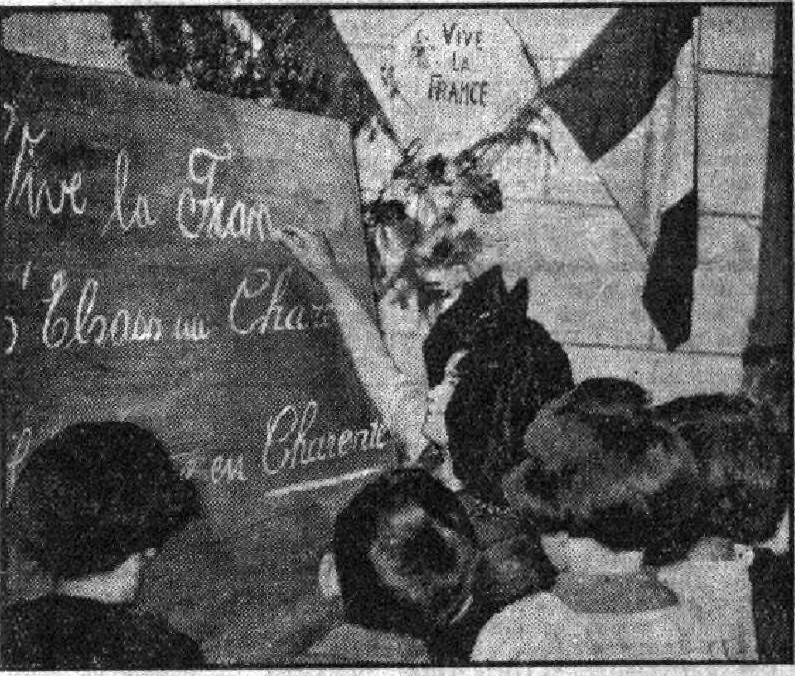 VIVE
LA
FRANCE
Vive la Fran
Elsass Cha
en Charente